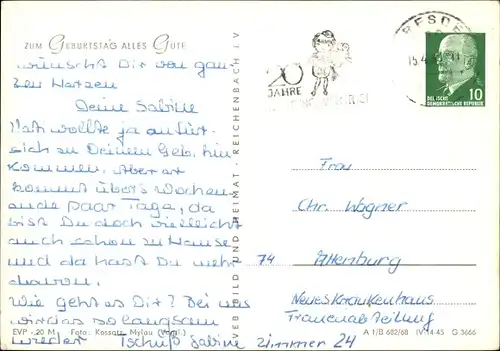 ZUM GEBURTSTAG ALLES GUTE
wünscht Dir von gan-
zen Herzen
Deine Sabine
Mati wollte ja an fürt.
sich zu Deinem Geb. hin
kommen. Aber er
kommt übers Wochen
ende paar Tage, da
bist Du doch vielleicht
auch schon zu Hause
und da hast Du mehr
davon.
Wie geht es Dir? Bei uns
wird das so langsam
wieder Tschüß Sabine
EVP -.20 M Foto: Kossatz, Mylau (Vogtl.)
VEB BILD UND HEIMAT · REICHENBACH i. V
20
JAHRE
DRESDE
15.4
10
DEUTSCHE
DEMOKRATISCHE REPUBLIK
Frau
Chr. Wagner
74 Altenburg
Neues Krankenhaus
Frauenabteilung
Zimmer 24
A 1/B 682/68 IV-14-45 G 3666